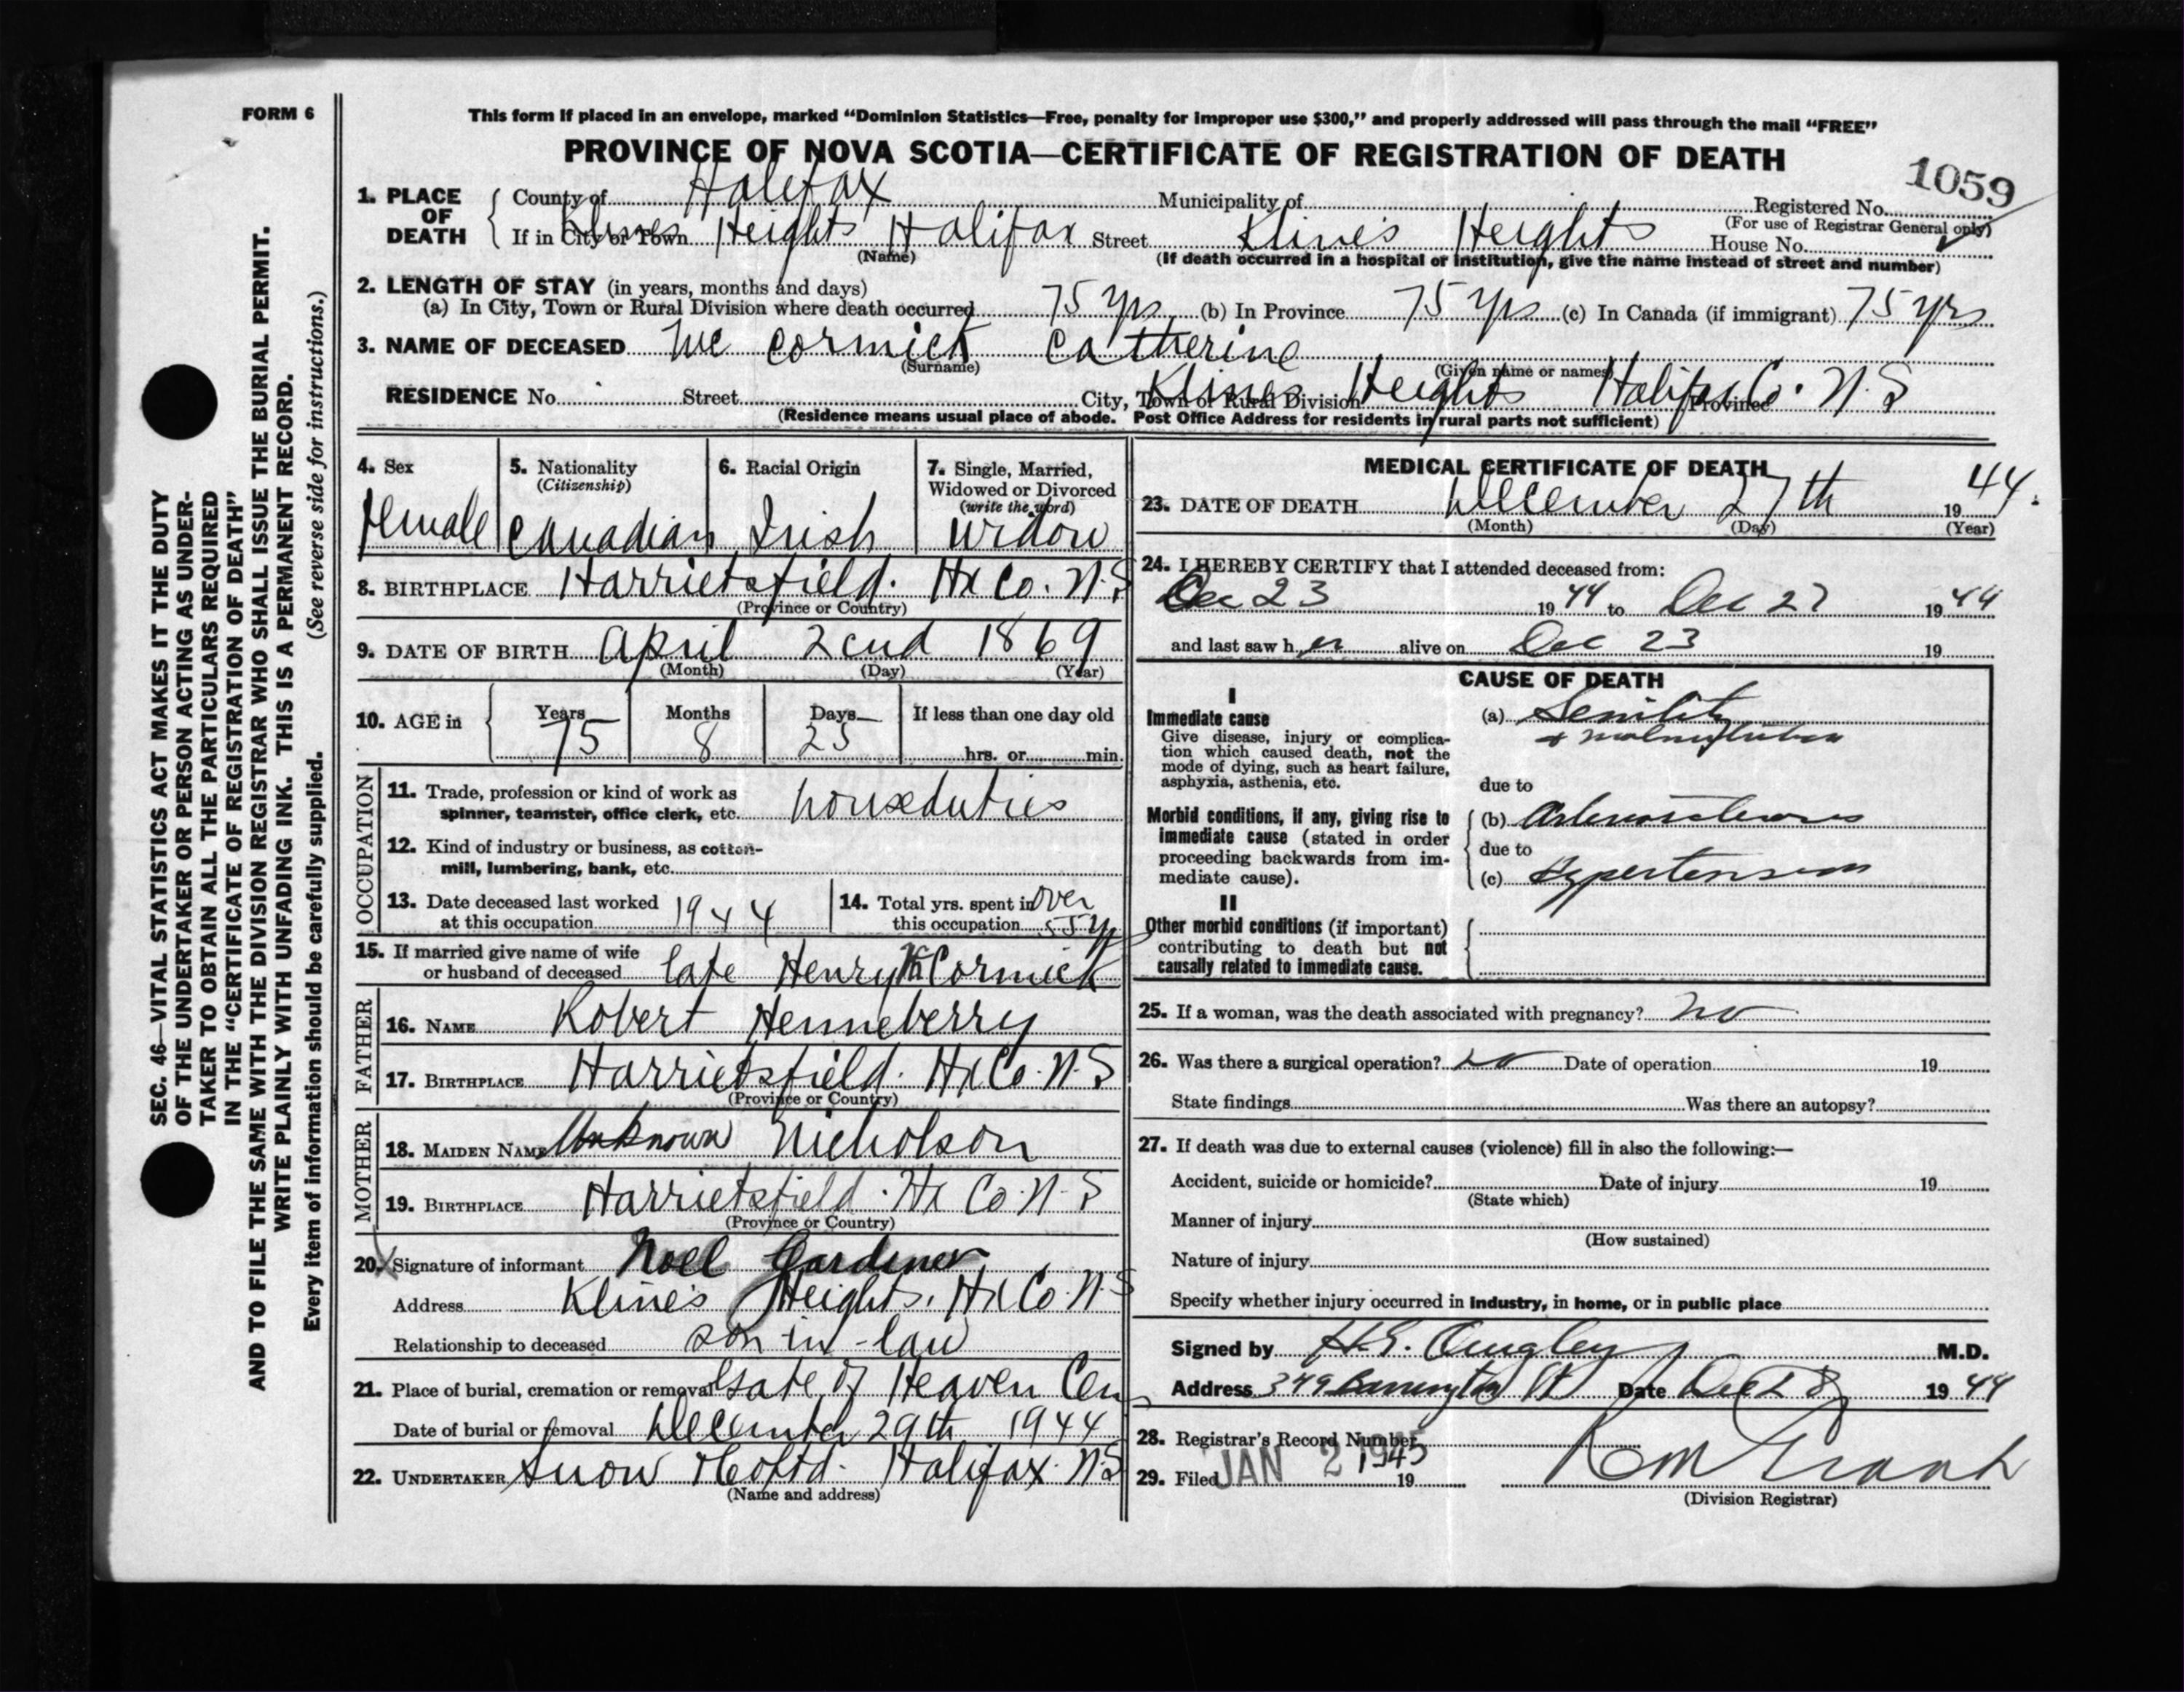 FORM 6
This form if placed in an envelope, marked “Dominion Statistics—Free, penalty for improper use $300,” and properly addressed will pass through the mail “FREE”
PROVINCE OF NOVA SCOTIA—CERTIFICATE OF REGISTRATION OF DEATH
1059
1. PLACE OF DEATH
County of Halifax Municipality of Registered No.
(For use of Registrar General only)
If in City or Town Klines Heights Halifax Street Kline's Heights House No.
(Name) (If death occurred in a hospital or institution, give the name instead of street and number)
2. LENGTH OF STAY (in years, months and days)
(a) In City, Town or Rural Division where death occurred 75 yrs (b) In Province 75 yrs (c) In Canada (if immigrant) 75 yrs
3. NAME OF DECEASED Mc Cormick Catherine
(Surname) (Given name or names)
RESIDENCE No. Street City, Town or Rural Division Klines Heights Halifax Co. N.S Province
(Residence means usual place of abode. Post Office Address for residents in rural parts not sufficient)
4. Sex
female
5. Nationality
(Citizenship)
Canadian
6. Racial Origin
Irish
7. Single, Married,
Widowed or Divorced
(write the word)
widow
8. BIRTHPLACE Harrietsfield. Hx Co. N.S
(Province or Country)
9. DATE OF BIRTH April 2cnd 1869
(Month) (Day) (Year)
10. AGE in
Years Months Days If less than one day old
75 8 25 hrs. or min.
OCCUPATION
11. Trade, profession or kind of work as
spinner, teamster, office clerk, etc. houseduties
12. Kind of industry or business, as cotton-
mill, lumbering, bank, etc.
13. Date deceased last worked
at this occupation 1944
14. Total yrs. spent in over
this occupation 55 y
15. If married give name of wife
or husband of deceased late Henry McCormick
FATHER
16. NAME Robert Henneberry
17. BIRTHPLACE Harrietsfield. Hx Co. N.S
(Province or Country)
MOTHER
18. MAIDEN NAME Unknown Nicholson
19. BIRTHPLACE Harrietsfield. Hx Co. N-S
(Province or Country)
20. Signature of informant Noel Gardiner
Address Kline's Heights. Hx Co. N.S
Relationship to deceased son in-law
21. Place of burial, cremation or removal Gate of Heaven Cem
Date of burial or removal December 29th 1944
22. UNDERTAKER Snow & Co Ltd. Halifax N.S
(Name and address)
MEDICAL CERTIFICATE OF DEATH
23. DATE OF DEATH December 27th 1944.
(Month) (Day) (Year)
24. I HEREBY CERTIFY that I attended deceased from:
Dec 23 1944 to Dec 27 1944
and last saw her alive on Dec 23 19
CAUSE OF DEATH
I
Immediate cause
Give disease, injury or complica-
tion which caused death, not the
mode of dying, such as heart failure,
asphyxia, asthenia, etc.
(a) Senility
+ malnutrition
due to
Morbid conditions, if any, giving rise to
immediate cause (stated in order
proceeding backwards from im-
mediate cause).
(b) Arteriosclerosis
due to
(c) Hypertension
II
Other morbid conditions (if important)
contributing to death but not
causally related to immediate cause.
25. If a woman, was the death associated with pregnancy? no
26. Was there a surgical operation? no Date of operation 19
State findings Was there an autopsy?
27. If death was due to external causes (violence) fill in also the following:—
Accident, suicide or homicide? Date of injury 19
(State which)
Manner of injury
(How sustained)
Nature of injury
Specify whether injury occurred in industry, in home, or in public place
Signed by H.S. M.D.
Address 349 Barrington St Date Dec 28 1944
28. Registrar's Record Number
29. Filed JAN 2 1945 19
(Division Registrar)
SEC. 46—VITAL STATISTICS ACT MAKES IT THE DUTY
OF THE UNDERTAKER OR PERSON ACTING AS UNDER-
TAKER TO OBTAIN ALL THE PARTICULARS REQUIRED
IN THE “CERTIFICATE OF REGISTRATION OF DEATH”
AND TO FILE THE SAME WITH THE DIVISION REGISTRAR WHO SHALL ISSUE THE BURIAL PERMIT.
WRITE PLAINLY WITH UNFADING INK. THIS IS A PERMANENT RECORD.
Every item of information should be carefully supplied. (See reverse side for instructions.)